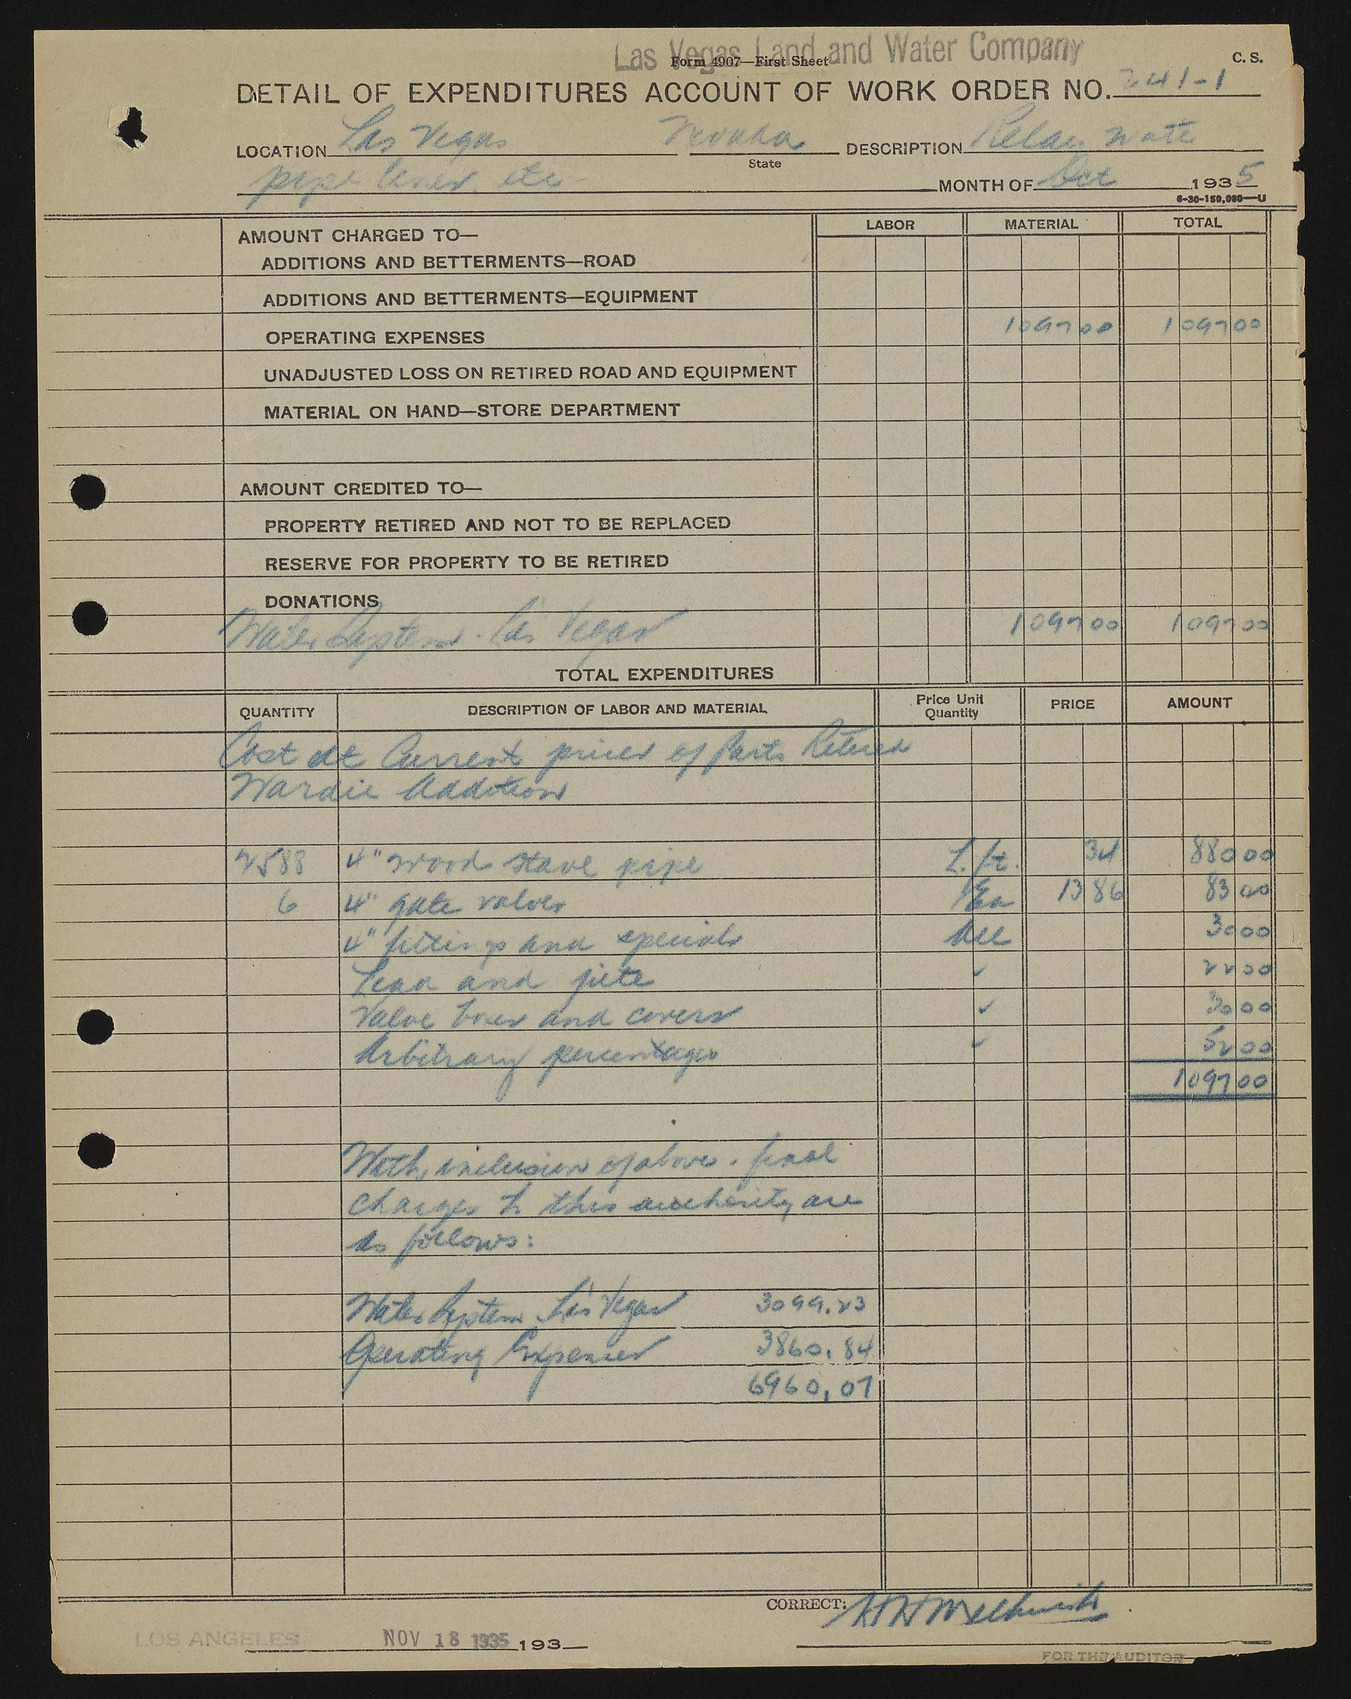 Las Vegas Land and Water Company
Form 4907—First Sheet
C. S.
DETAIL OF EXPENDITURES ACCOUNT OF WORK ORDER NO. 341-1
LOCATION Las Vegas Nevada DESCRIPTION Relay water
State
pipe lines etc MONTH OF Oct 1935
6-30-150,000—U
LABOR MATERIAL TOTAL
AMOUNT CHARGED TO—
ADDITIONS AND BETTERMENTS—ROAD
ADDITIONS AND BETTERMENTS—EQUIPMENT
OPERATING EXPENSES 1097 00 1097 00
UNADJUSTED LOSS ON RETIRED ROAD AND EQUIPMENT
MATERIAL ON HAND—STORE DEPARTMENT
AMOUNT CREDITED TO—
PROPERTY RETIRED AND NOT TO BE REPLACED
RESERVE FOR PROPERTY TO BE RETIRED
DONATIONS
Water System. Las Vegas 1097 00 1097 00
TOTAL EXPENDITURES
QUANTITY DESCRIPTION OF LABOR AND MATERIAL Price Unit Quantity PRICE AMOUNT
Cost at Current prices of Parts Retired
Wardie Addition
2588 4" wood stave pipe L.ft. 34 880 00
6 4" gate valves Ea 13 86 83 00
4" fittings and specials All 30 00
Lead and jute ✓ 22 00
Valve boxes and covers ✓ 30 00
Arbitrary percentages ✓ 52 00
1097 00
With inclusion of above. final
charges to this authority are
as follows:
Water System Las Vegas 3099.23
Operating Expenses 3860.84
6960.07
CORRECT:
LOS ANGELES NOV 18 1935 193
FOR THE AUDITOR